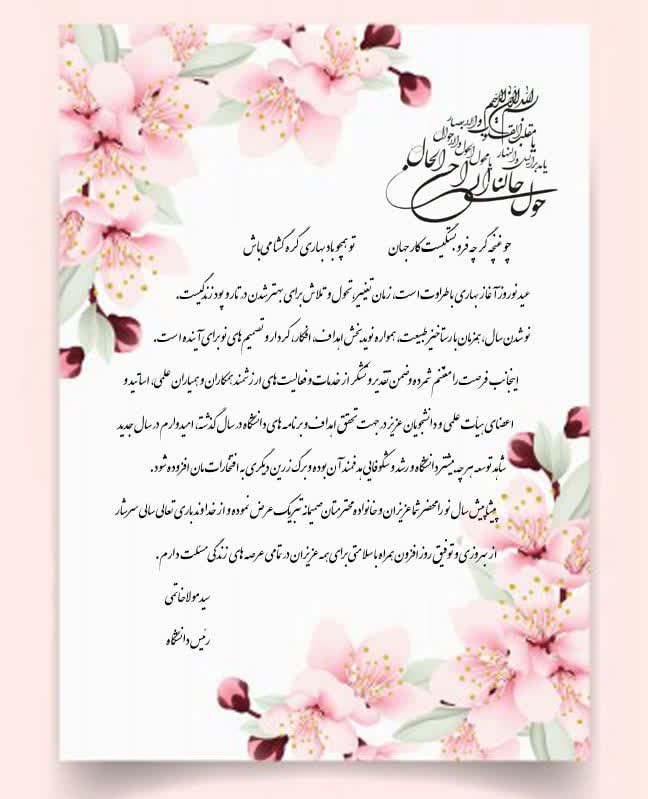 بسم الله الرحمن الرحیم
یا مقلب القلوب والابصار
یا مدبر اللیل والنهار یا محول الحول والاحوال
حول حالنا الی احسن الحال
چو غنچه گر چه فروبستگیست کار جهان تو همچو باد بهاری گره گشا می باش
عید نوروز آغاز بهاری با طراوت است، زمان تغییر، تحول و تلاش برای بهتر شدن در تار و پود زندگیست.
نو شدن سال، همزمان با رستاخیز طبیعت، همواره نوید بخش اهداف، افکار، کردار و تصمیم های نو برای آینده است.
اینجانب فرصت را مغتنم شمرده و ضمن تقدیر و تشکر از خدمات و فعالیت های ارزشمند همکاران و همیاران علمی، اساتید و
اعضای هیأت علمی و دانشجویان عزیز در جهت تحقق اهداف و برنامه های دانشگاه در سال گذشته، امیدوارم در سال جدید
شاهد توسعه هر چه بیشتر دانشگاه و رشد و شکوفایی هدفمند آن بوده و برگ زرین دیگری به افتخارات مان افزوده شود.
پیشاپیش سال نو را محضر شما عزیزان و خانواده محترمتان صمیمانه تبریک عرض نموده و از خداوند باری تعالی سالی سرشار
از بهروزی و توفیق روزافزون همراه با سلامتی برای همه عزیزان در تمامی عرصه های زندگی مسئلت دارم.
سید مولا خاتمی
رئیس دانشگاه